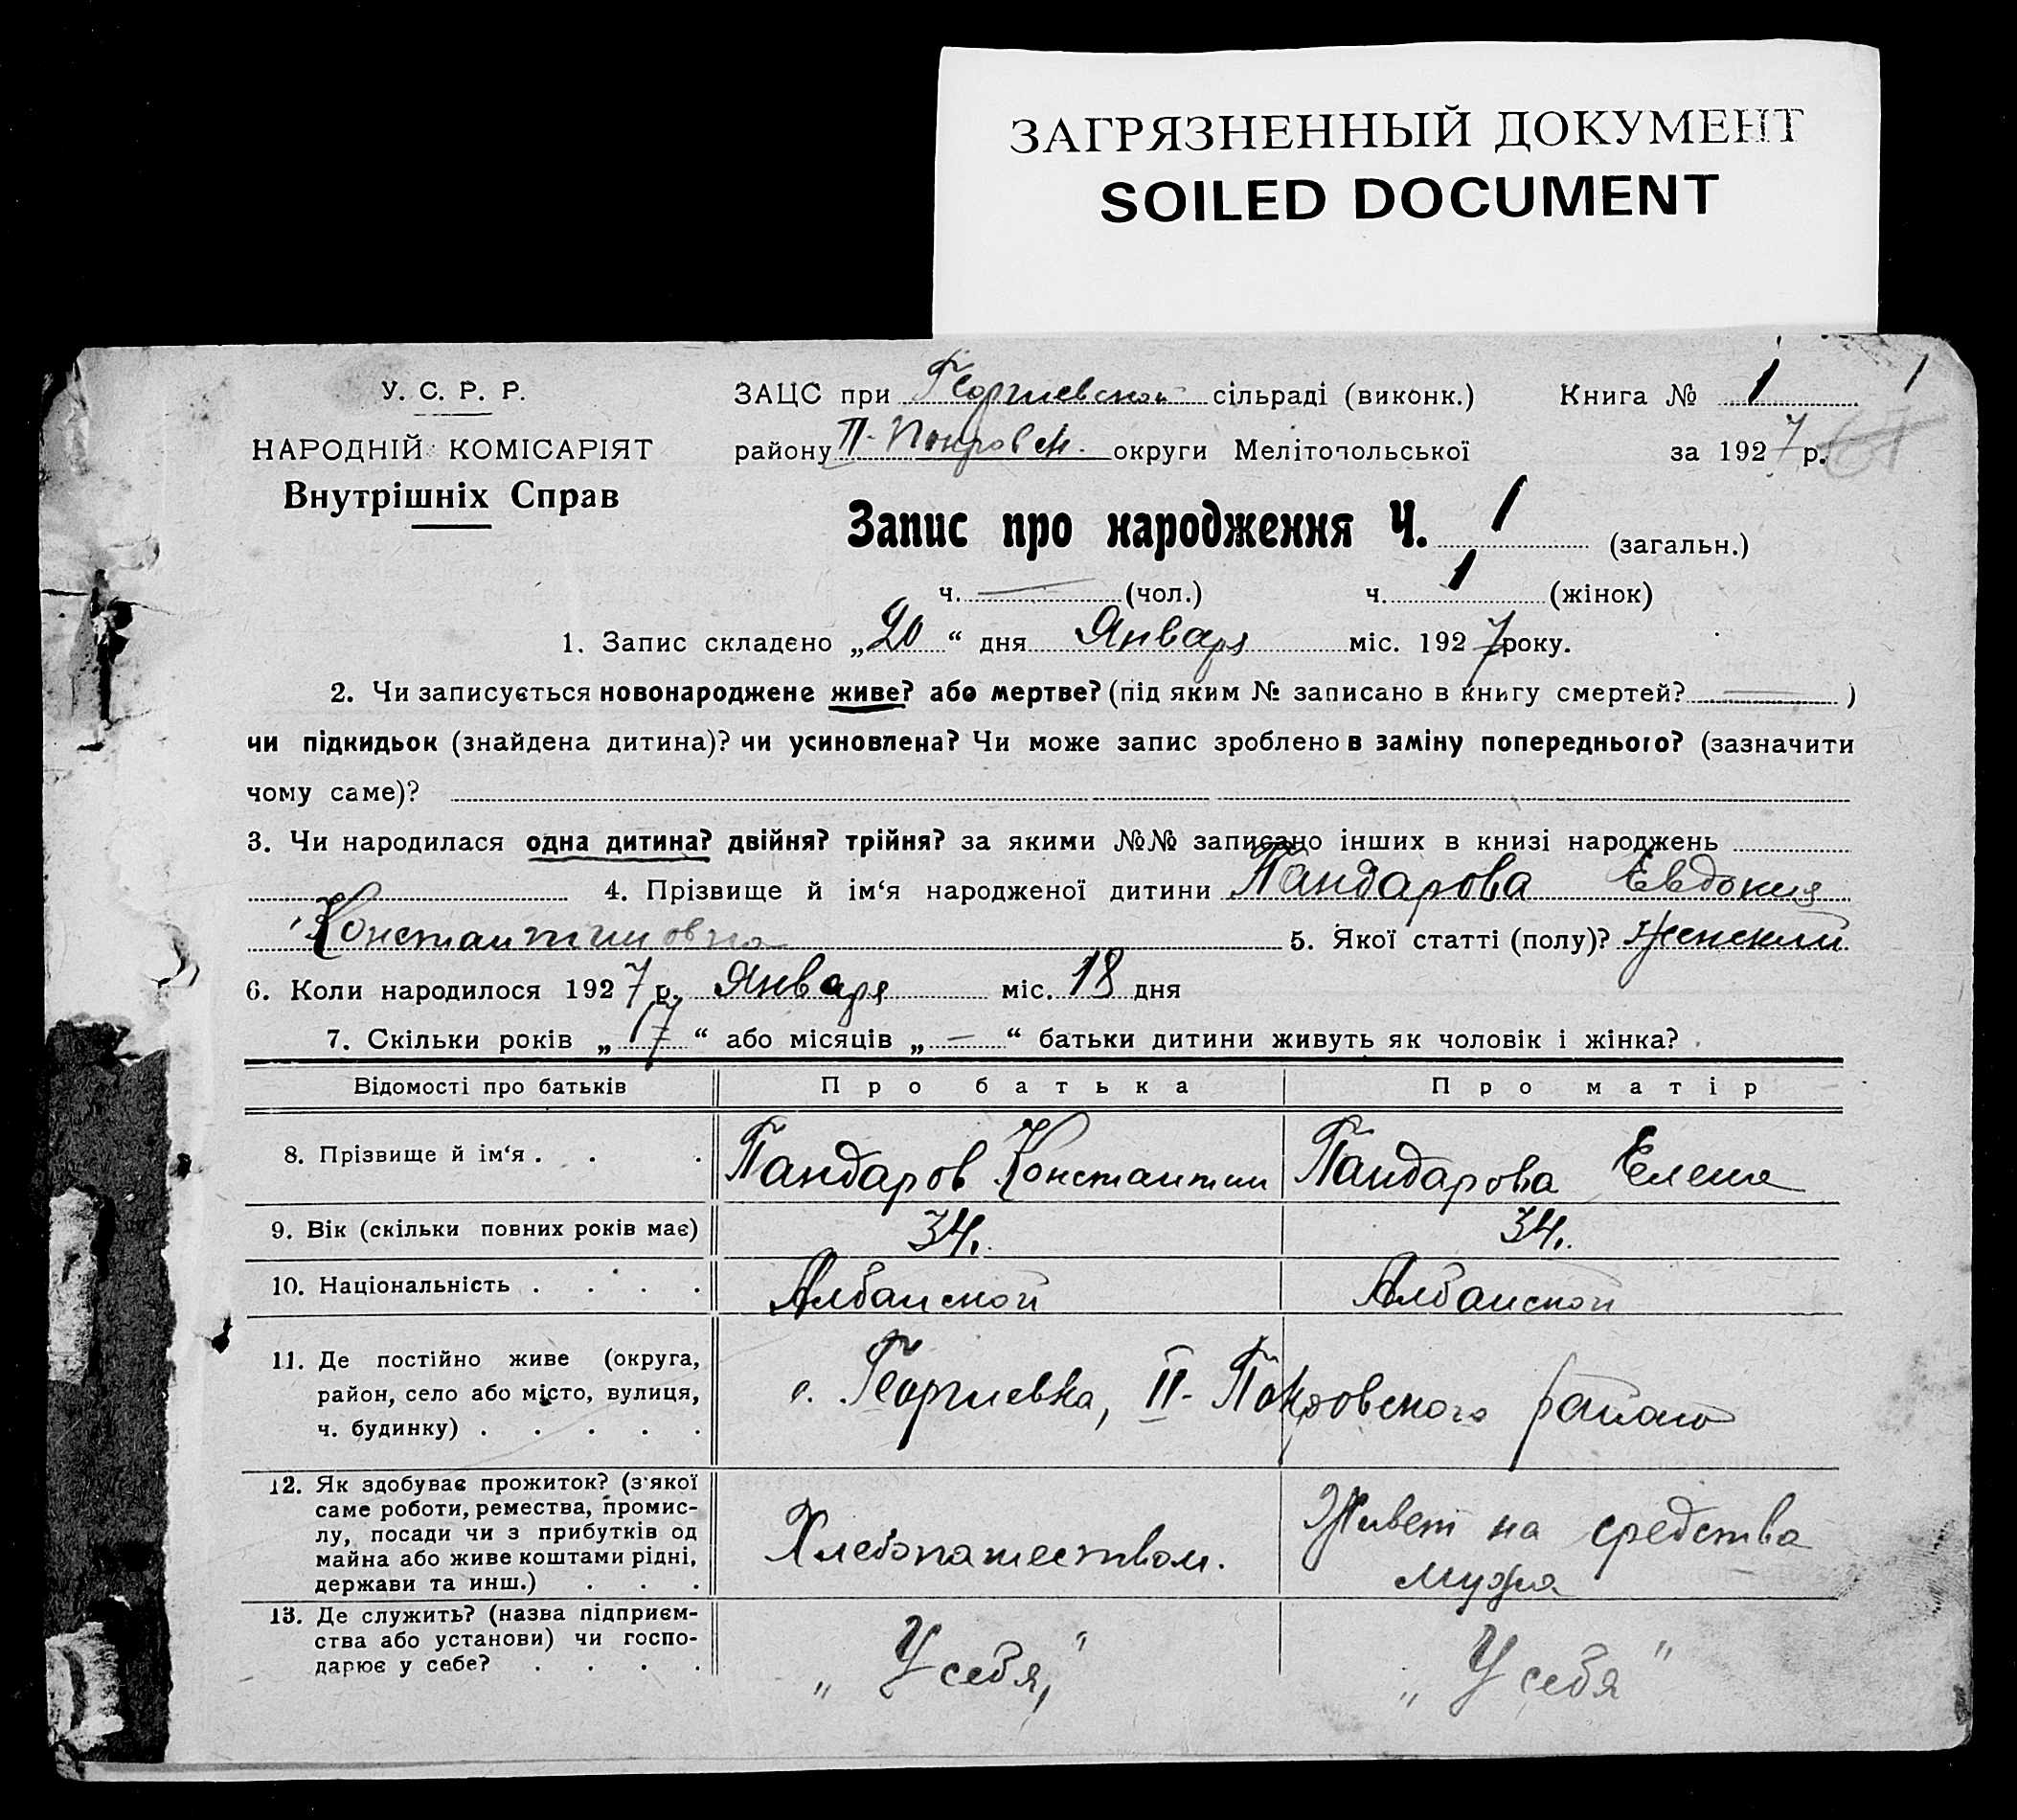 ЗАГРЯЗНЕННЫЙ ДОКУМЕНТ
SOILED DOCUMENT
1
У. С. Р. Р.
НАРОДНІЙ КОМІСАРІЯТ
Внутрішніх Справ
ЗАЦС при Георгиевской сільраді (виконк.) Книга № 1
району II-Покровск. округи Мелітопольської за 1927 р.
Запис про народження Ч. 1 (загальн.)
ч. — (чол.) ч. 1 (жінок)
1. Запис складено „20“ дня Января міс. 1927 року.
2. Чи записується новонароджене живе? або мертве? (під яким № записано в книгу смертей? — )
чи підкидьок (знайдена дитина)? чи усиновлена? Чи може запис зроблено в заміну попереднього? (зазначити
чому саме)?
3. Чи народилася одна дитина? двійня? трійня? за якими №№ записано інших в книзі народжень
4. Прізвище й ім‘я народженої дитини Пандарова Евдокия
Константиновна 5. Якої статті (полу)? женский
6. Коли народилося 1927 р. Января міс. 18 дня
7. Скільки років „17“ або місяців „—“ батьки дитини живуть як чоловік і жінка?
Відомості про батьків Про батька Про матір
8. Прізвище й ім‘я . . . Пандаров Константин Пандарова Елена
9. Вік (скільки повних років має) 34. 34.
10. Національність . . . . Албанской Албанской
11. Де постійно живе (округа,
район, село або місто, вулиця,
ч. будинку) . . . . .
с. Георгиевка, II-Покровского района
12. Як здобуває прожиток? (з‘якої
саме роботи, ремества, промис-
лу, посади чи з прибутків од
майна або живе коштами рідні,
держави та инш.) . . .
Хлебопашеством.
Живет на средства
мужа
13. Де служить? (назва підприєм-
ства або установи) чи госпо-
дарює у себе? . . . .
„У себя“
„У себя“